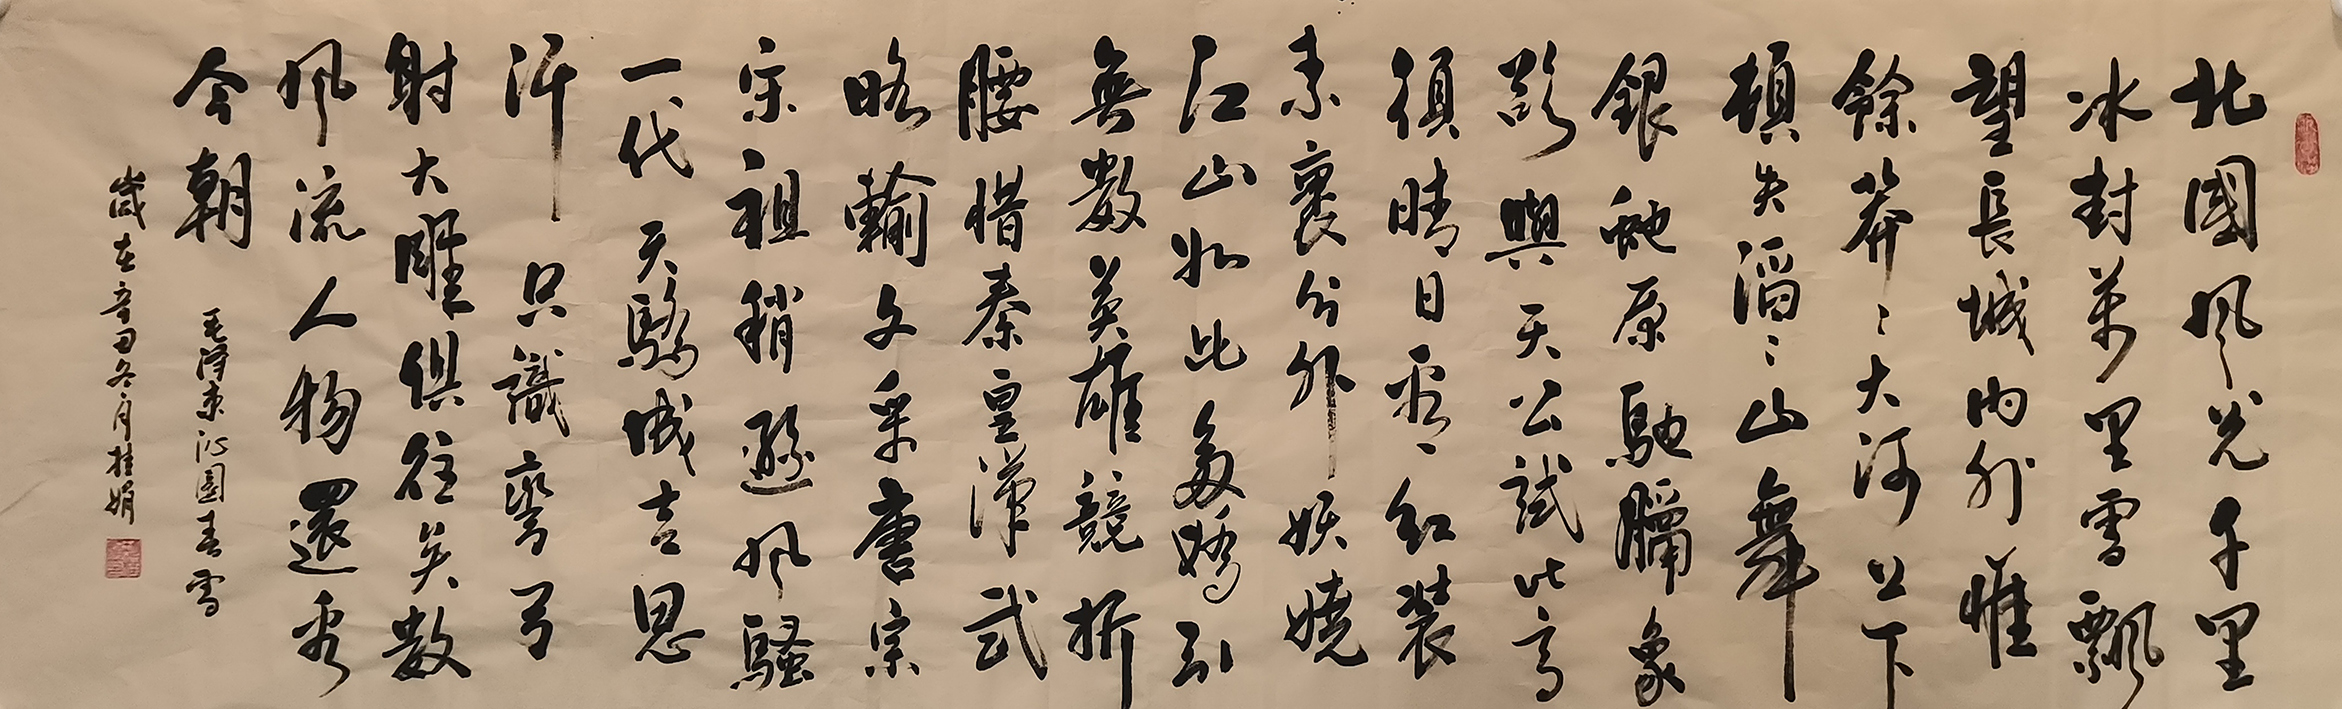 北國風光千里
冰封萬里雪飄
望長城内外惟
餘莽〻大河上下
頓失滔〻山舞
銀蛇原馳臘象
欲與天公試比高
須晴日看紅裝
素裹分外妖嬈
江山如此多嬌引
無數英雄競折
腰惜秦皇漢武
略輸文采唐宗
宋祖稍遜風騷
一代天驕成吉思
汗只識彎弓
射大雕俱往矣數
風流人物還看
今朝
毛澤東沁園春雪
歲在辛丑冬月桂娟